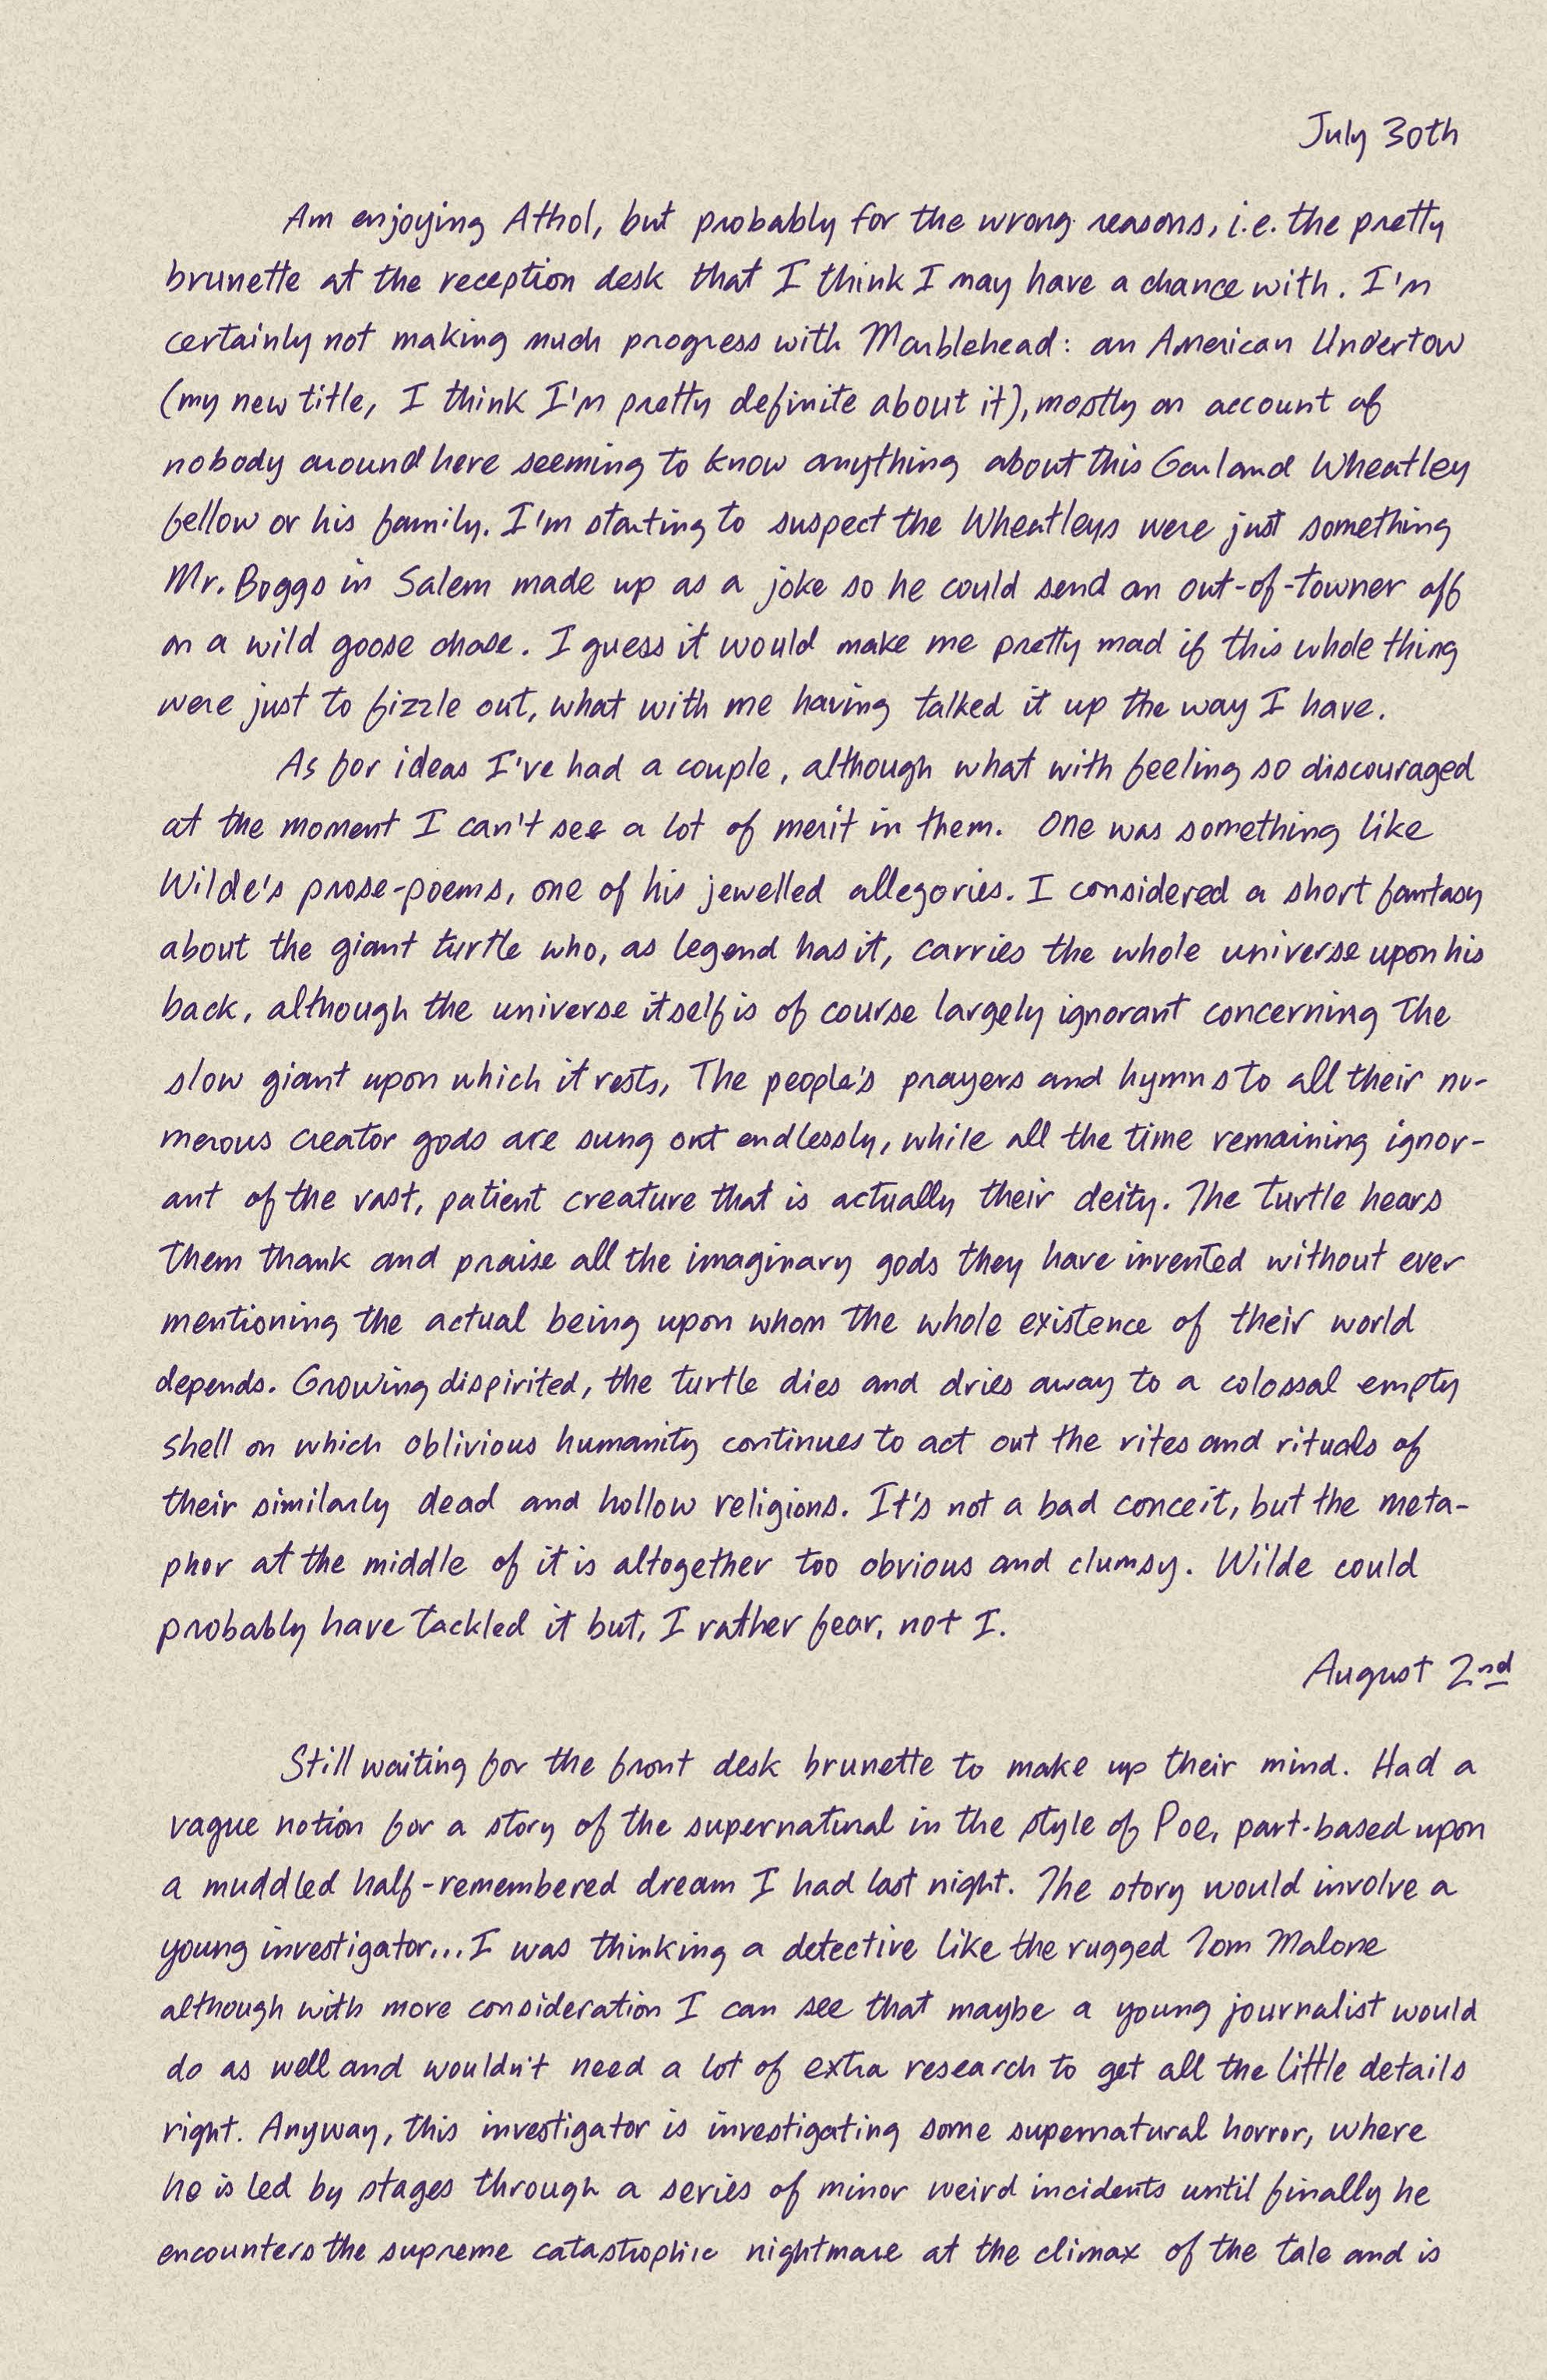 July 30th
Am enjoying Athol, but probably for the wrong reasons, i.e. the pretty
brunette at the reception desk that I think I may have a chance with. I'm
certainly not making much progress with Marblehead: an American Undertow
(my new title, I think I'm pretty definite about it), mostly on account of
nobody around here seeming to know anything about this Garland Wheatley
fellow or his family. I'm starting to suspect the Wheatleys were just something
Mr. Boggs in Salem made up as a joke so he could send an out-of-towner off
on a wild goose chase. I guess it would make me pretty mad if this whole thing
were just to fizzle out, what with me having talked it up the way I have.
As for ideas I've had a couple, although what with feeling so discouraged
at the moment I can't see a lot of merit in them. One was something like
Wilde's prose-poems, one of his jewelled allegories. I considered a short fantasy
about the giant turtle who, as legend has it, carries the whole universe upon his
back, although the universe itself is of course largely ignorant concerning the
slow giant upon which it rests, The people's prayers and hymns to all their nu-
merous creator gods are sung out endlessly, while all the time remaining ignor-
ant of the vast, patient creature that is actually their deity. The turtle hears
them thank and praise all the imaginary gods they have invented without ever
mentioning the actual being upon whom the whole existence of their world
depends. Growing dispirited, the turtle dies and dries away to a colossal empty
shell on which oblivious humanity continues to act out the rites and rituals of
their similarly dead and hollow religions. It's not a bad conceit, but the meta-
phor at the middle of it is altogether too obvious and clumsy. Wilde could
probably have tackled it but, I rather fear, not I.
August 2nd
Still waiting for the front desk brunette to make up their mind. Had a
vague notion for a story of the supernatural in the style of Poe, part-based upon
a muddled half-remembered dream I had last night. The story would involve a
young investigator... I was thinking a detective like the rugged Tom Malone
although with more consideration I can see that maybe a young journalist would
do as well and wouldn't need a lot of extra research to get all the little details
right. Anyway, this investigator is investigating some supernatural horror, where
he is led by stages through a series of minor weird incidents until finally he
encounters the supreme catastrophic nightmare at the climax of the tale and is